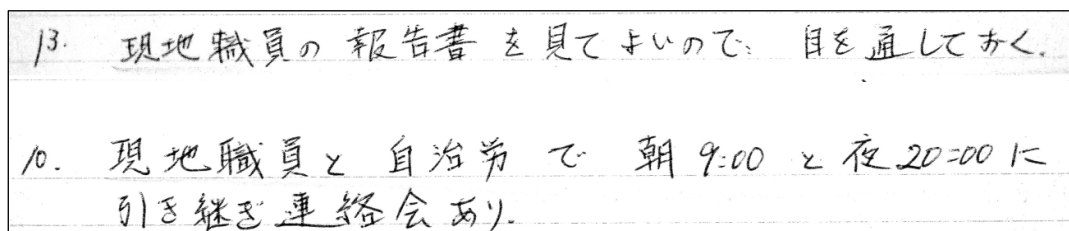 13. 現地職員の報告書を見てよいので、目を通しておく.
10. 現地職員と自治労で朝9:00と夜20:00に
引き継ぎ連絡会あり.